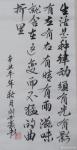 生活是种律动须有光有影
有左有右有晴有雨滋味
就含在这变而不猛的曲
折里